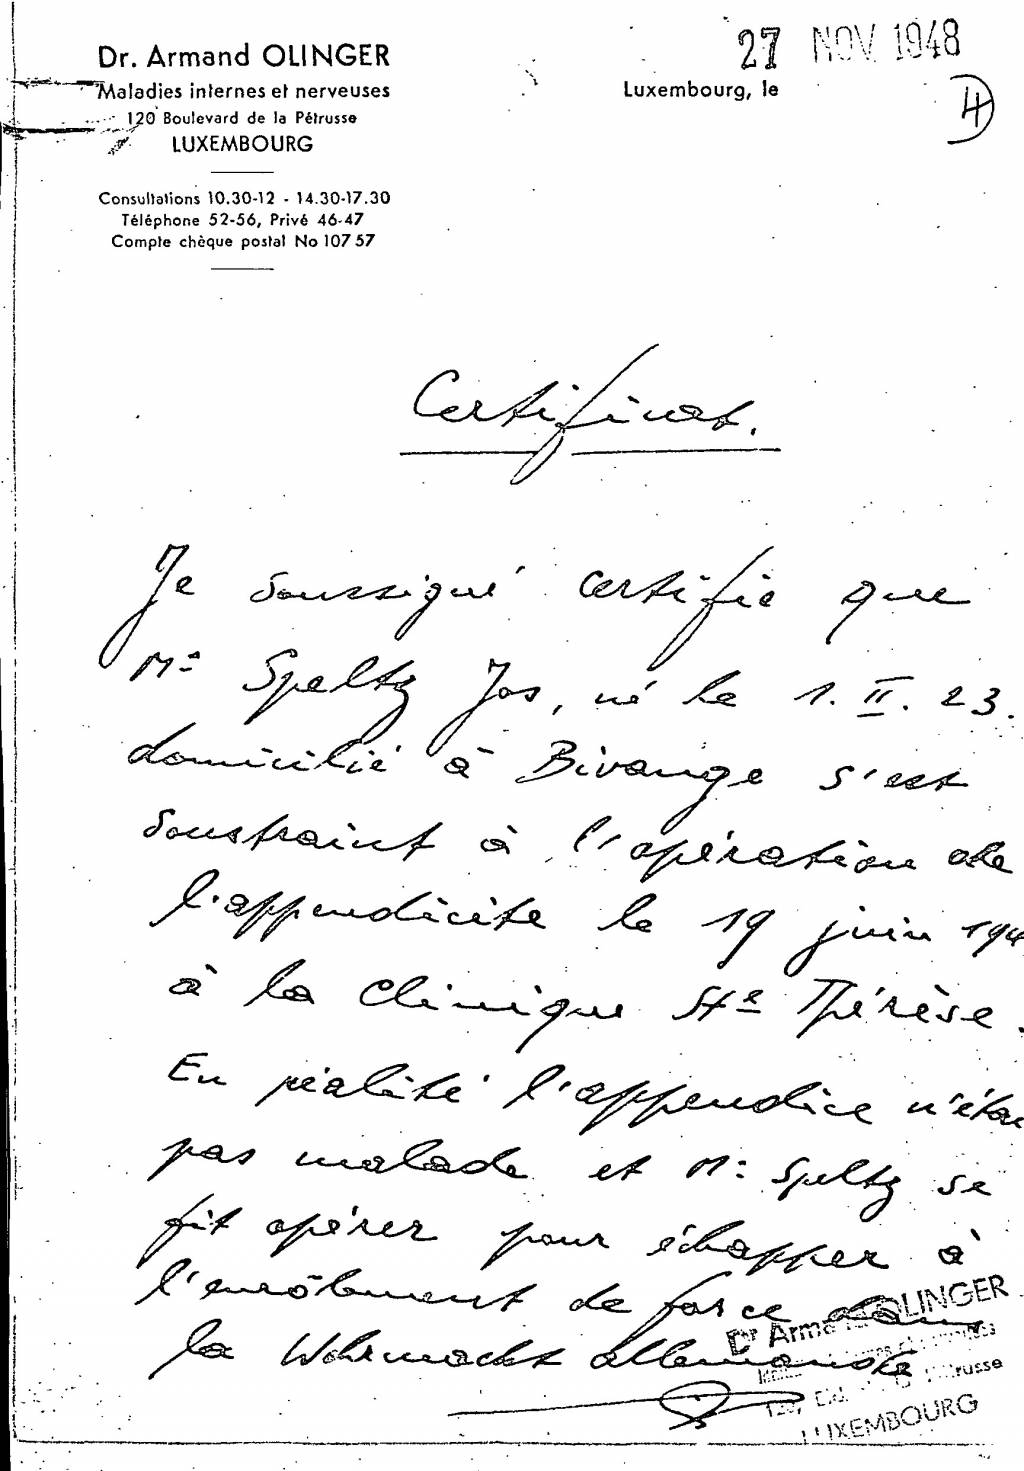 Dr. Armand OLINGER
Maladies internes et nerveuses
120 Boulevard de la Pétrusse
LUXEMBOURG
Consultations 10.30-12 - 14.30-17.30
Téléphone 52-56, Privé 46-47
Compte chèque postal No 107 57
27 NOV 1948
Luxembourg, le
4
Certificat.
Je soussigné certifie que
Mr Speltz Jos, né le 1. II. 23.
domicilié à Bivange s'est
soustraint à l'opération de
l'appendicite le 19 juin 194
à la clinique Ste Thérèse.
En réalité l'appendice n'étai
pas malade et Mr Speltz se
fit opérer pour échapper à
l'enrôlement de force dans
la Wehrmacht allemande
Dr Arma OLINGER
trusse
LUXEMBOURG